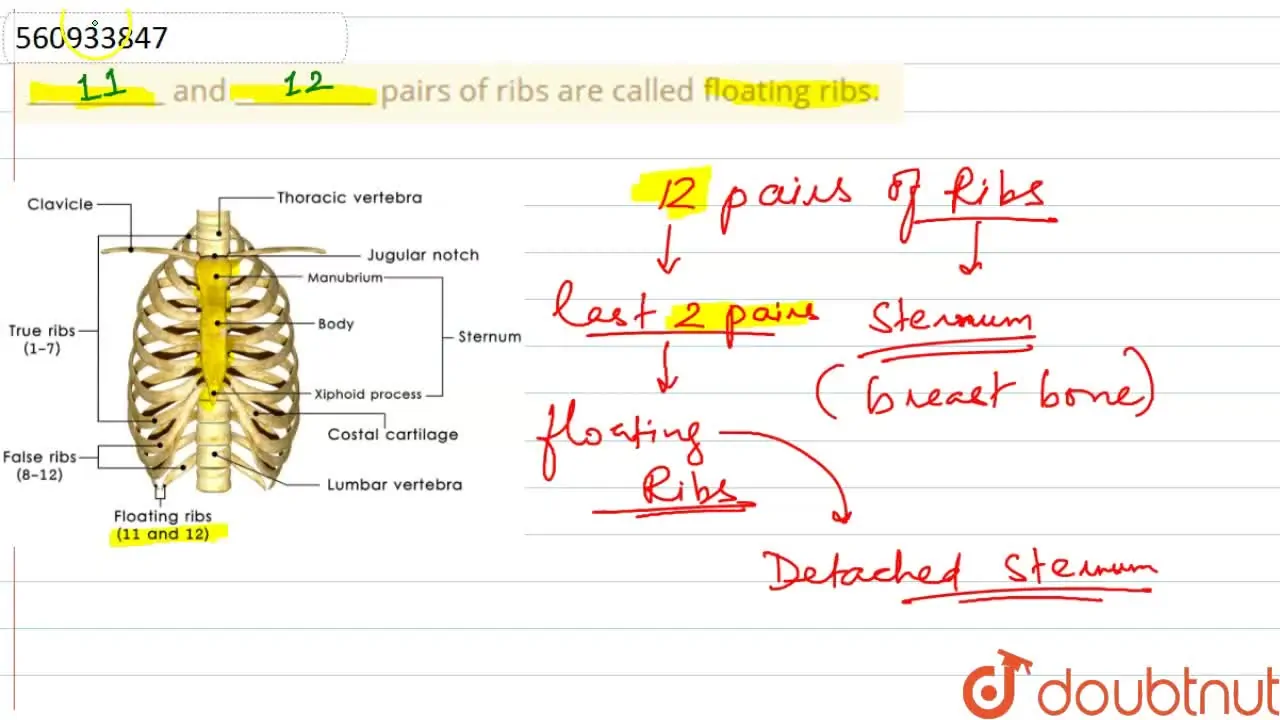 560933847
11 and 12 pairs of ribs are called floating ribs.
Clavicle
Thoracic vertebra
Jugular notch
Manubrium
True ribs
(1-7)
Body
Sternum
Xiphoid process
Costal cartilage
False ribs
(8-12)
Lumbar vertebra
Floating ribs
(11 and 12)
12 pairs of Ribs
last 2 pairs
Sternum
(breast bone)
floating
Ribs
Detached Sternum
doubtnut